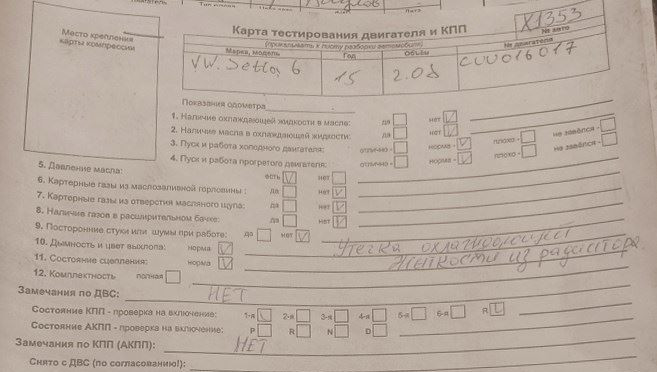 Место крепления
карты компрессии
Карта тестирования двигателя и КПП
(прикалывать к листу разборки автомобиля)
X1353
№ авто
Марка, модель Год Объём № двигателя
VW. Jetta 6 15 2.0
Показания одометра
1. Наличие охлаждающей жидкости в масле: да нет
2. Наличие масла в охлаждающей жидкости: да нет
3. Пуск и работа холодного двигателя: отлично - норма - плохо - не завёлся -
4. Пуск и работа прогретого двигателя: отлично - норма - плохо - не завёлся -
5. Давление масла: есть нет
6. Картерные газы из маслозаливной горловины : да нет
7. Картерные газы из отверстия масляного щупа: да нет
8. Наличие газов в расширительном бачке: да нет
9. Посторонние стуки или шумы при работе: да нет
10. Дымность и цвет выхлопа: норма Утечка охлаждающей
11. Состояние сцепления: норма жидкости из радиатора
12. Комплектность полная
Замечания по ДВС: НЕТ
Состояние КПП - проверка на включение: 1-я 2-я 3-я 4-я 5-я 6-я R
Состояние АКПП - проверка на включение: P R N D
Замечания по КПП (АКПП): НЕТ
Снято с ДВС (по согласованию!):